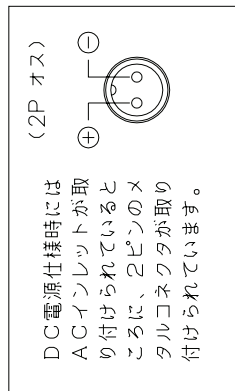 (2P オス)
⊕ ⊖
DC電源仕様時には
ACインレットが取
り付けられていると
ころに、2ピンのメ
タルコネクタが取り
付けられています。